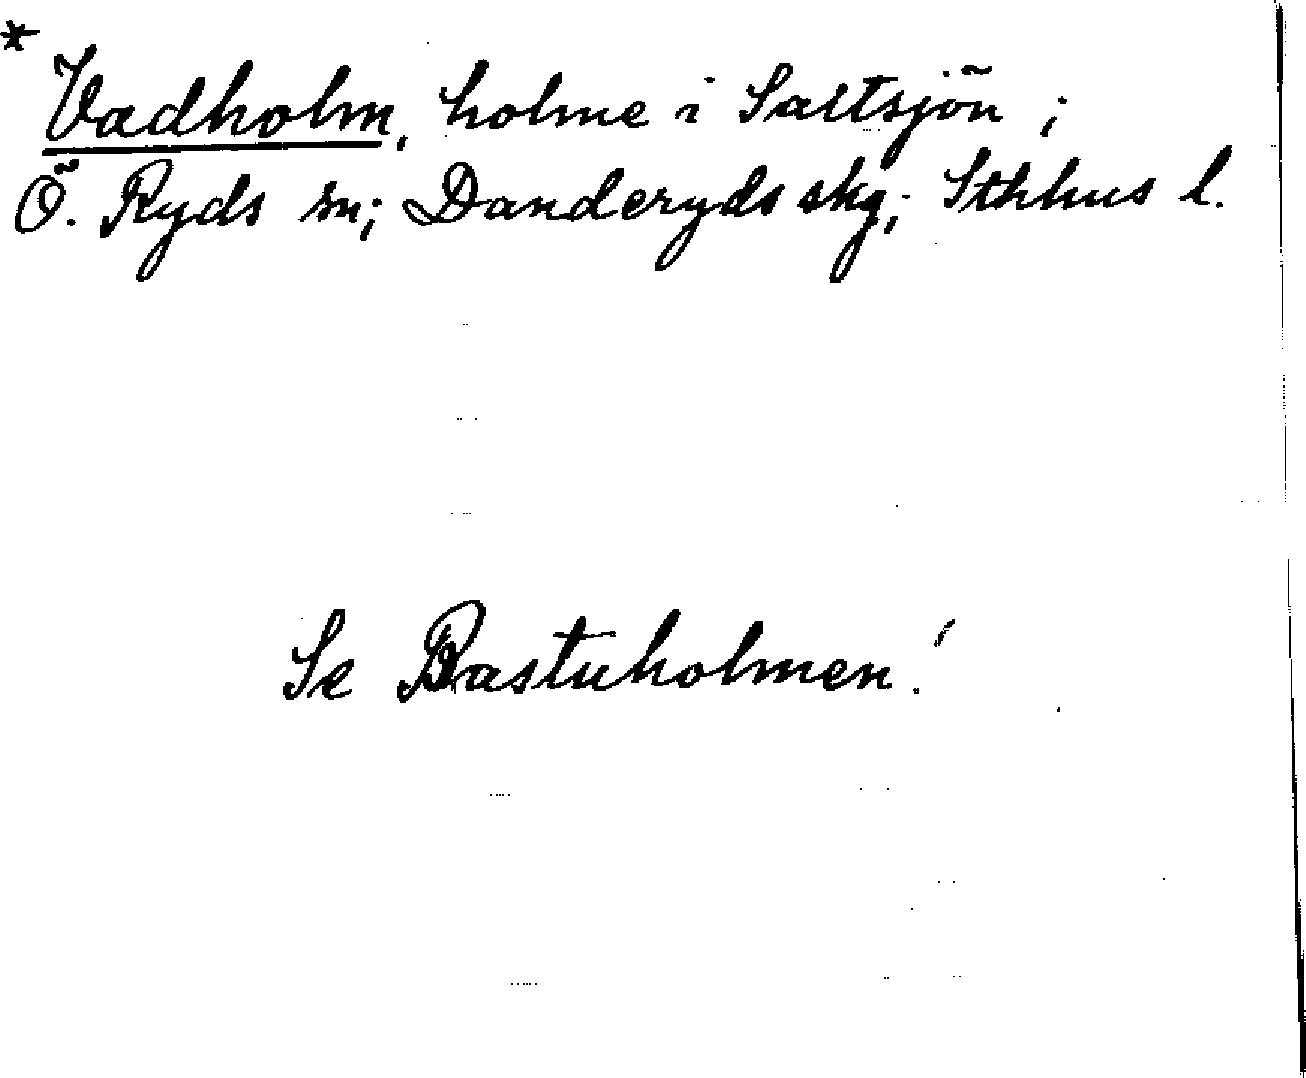 *
Vadholm, holme i Saltsjön;
Ö. Ryds sn; Danderyds skg; Sthlms l.
Se Bastuholmen!